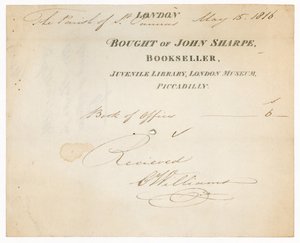 LONDON
The Parish of St. May 15. 1816
BOUGHT OF JOHN SHARPE,
BOOKSELLER,
JUVENILE LIBRARY, LONDON MUSEUM,
PICCADILLY.
Book of Offices 6
Recieved
C Williams